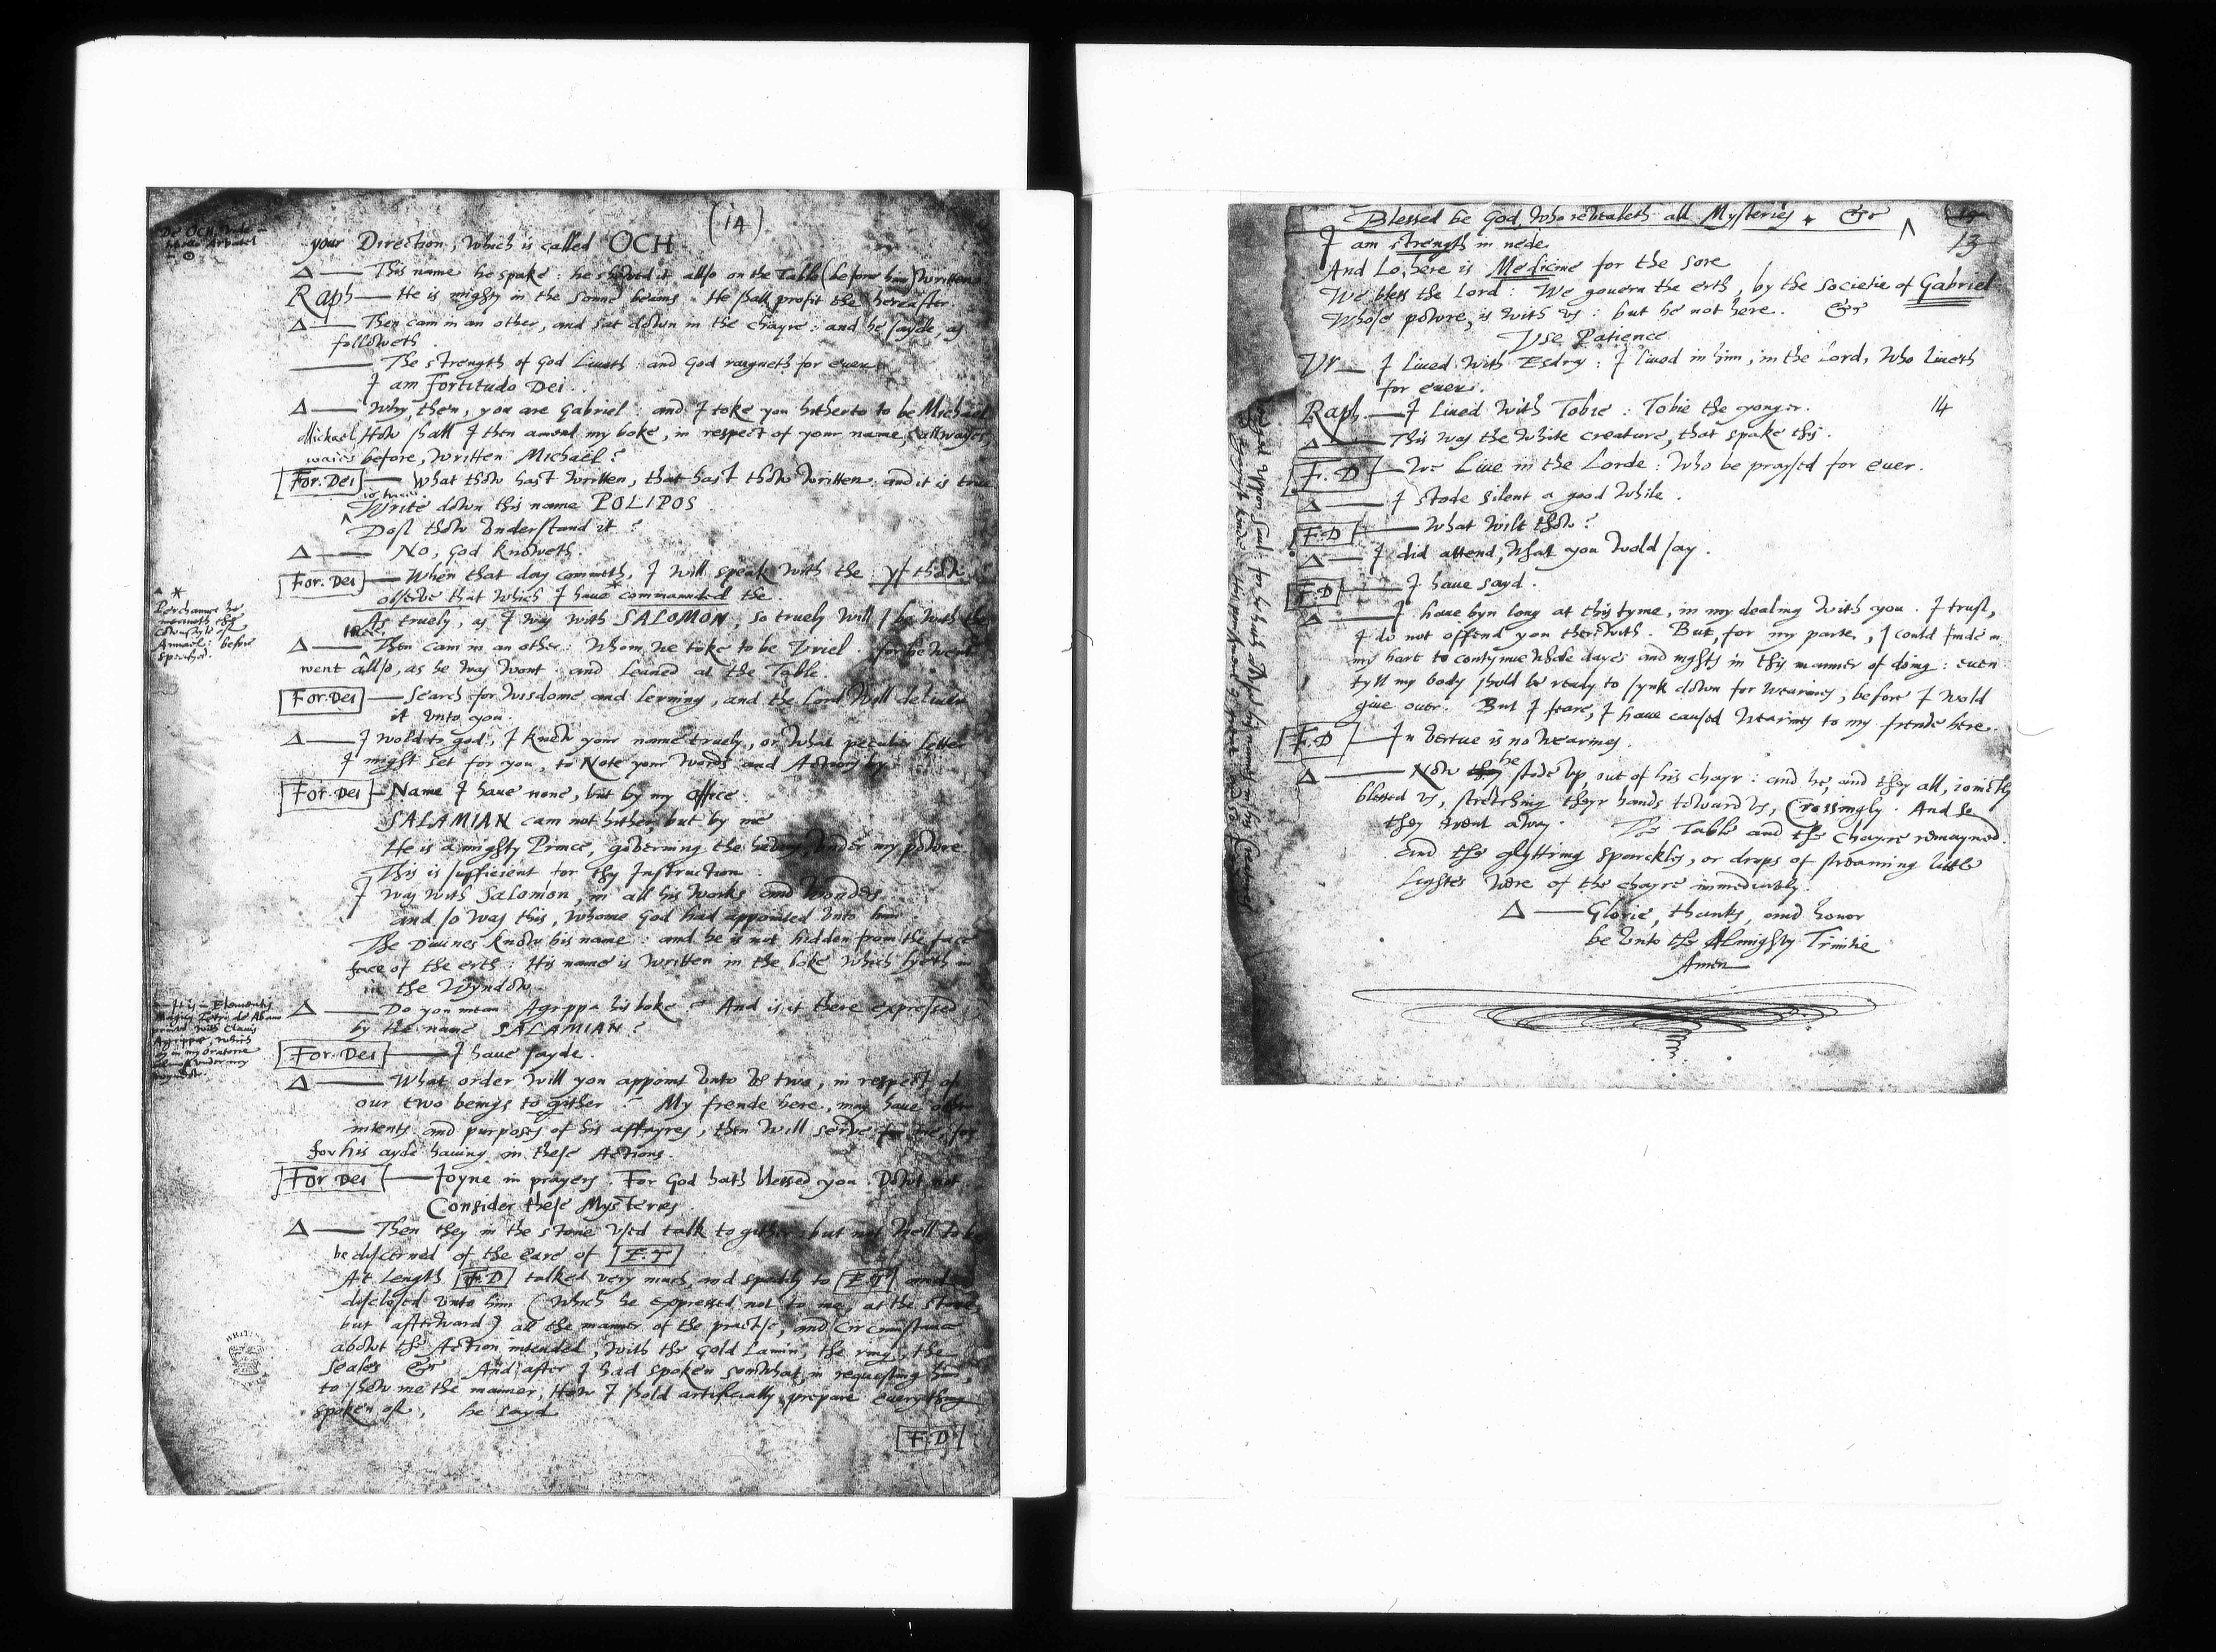 (14)
De OCH, vide
your Direction, which is called OCH
Δ — This name he spake: he shewed it allso on the Table (before him) written
Raph — He is mighty in the sonne beams: He shall profit the hereafter.
Δ — Then cam in an other, and sat down in the chayre: and he sayde, as
followeth.
— The strength of God liueth: and God raigneth for euer.
I am Fortitudo Dei.
Δ — Why, then, you are Gabriel: and I toke you hitherto to be Michael
Michael How shall I then amend my boke, in respect of your name, allwayes
waies before, written Michaël?
For. Dei — What thow hast written, that hast thow written: and it is true
Write down this name POLIPOS
Dost thow vnderstand it?
Δ — No, God knoweth.
For. Dei — When that day commeth, I will speak with the: yf thow
obserue that which I haue commaunded the.
* Perchaunce he
meaneth the
cownsayle of
Annael: before
specifyed.
As truely, as I was with SALOMON, so truely will I be with the
Δ — Then cam in an other: whom we toke to be Vriel: for he went
went allso, as he was wont: and leaned at the Table.
For. Dei — Search for wisdome and lerning, and the Lord will deliuer
it vnto you.
Δ — I wold to god, I knew your name truely, or what peculier letter
I might set for you, to Note your words and Actions by.
For. Dei — Name I haue none, but by my office
SALAMIAN cam not hither, but by me
He is a mighty Prince, governing the hevens, vnder my powre
This is sufficient for thy Instruction.
I was with Salomon, in all his works and wonders.
and so was this, whome God had appointed vnto him
The Diuines know his name: and he is not hidden from the face
face of the erth: His name is written in the boke which lyeth in
in the Wyndow.
— It is — Elementis
Magicis Petri de Abano
printed with Clavis
Agrippæ, which
lay in my oratorie
Δ — Do you mean Agrippa his boke? And is it there expressed
by the name SALAMIAN?
For. Dei — I haue sayde.
Δ — What order will you appoint vnto vs two, in respect of
our two beings to gither? My frende here, may haue other
intents and purposes of his affayres, then will serve me, for
for his ayde hauing in these Actions.
For Dei — Joyne in prayers. For God hath blessed you: Dowt not
Consider these Mysteries
Δ — Then they in the stone vsed talk to gither: but not well to be
be discerned of the eare of E. T
At length F. D talked very much, and spedily to E.T and
disclosed vnto him (which he expressed not to me, at the stone,
but afterward) all the manner of the practise, and Circumstance
abowt the Action intended, with the gold Lamin, the ring, the
seales &c And after I had spoken somwhat, in requesting him,
to shew me the manner, How I shold artificially prepare everything
spoken of, he sayd
F. D
Blessed be God, who revealeth all Mysteries &c
13
I am strength in nede
And Lo, here is Medicine for the sore
We bless the Lord: We gouern the erth, by the societie of Gabriel:
Whose powre, is with vs: but he not here. &c
Vse Patience
Vr — I liued with Esdras: I liued in him, in the Lord, who liueth
for euer.
Raph. — I liued with Tobie: Tobie the yonger.
14
Δ — This was the white creature, that spake this.
F. D — We Liue in the Lorde: Who be praysed for euer.
Δ — I stode silent a good while.
F. D — What wilt thow?
Δ — I did attend, what you wold say.
F. D — I haue sayd.
Δ — I haue byn long at this tyme, in my dealing with you. I trust,
I do not offend you therewith. But, for my parte, I could finde in
my hart to contynue whole dayes and nights in this manner of doing: euen
tyll my body shold be ready to synk down for wearines, before I wold
giue ouer. But I feare, I haue caused wearines to my frende here.
F. D — In vertue is no wearines.
Δ — Now he stode vp, out of his chayr: and he, and they all, iointly
blessed vs, stretching theyr hands toward vs, Crossingly. And so
they went away. The Table and the Chayre remayned.
and the glyttring sparckles, or drops of streaming little
lightes were of the chayre immediately.
Δ — Glorie, thanks, and honor
be vnto the Almighty Trinitie
Amen